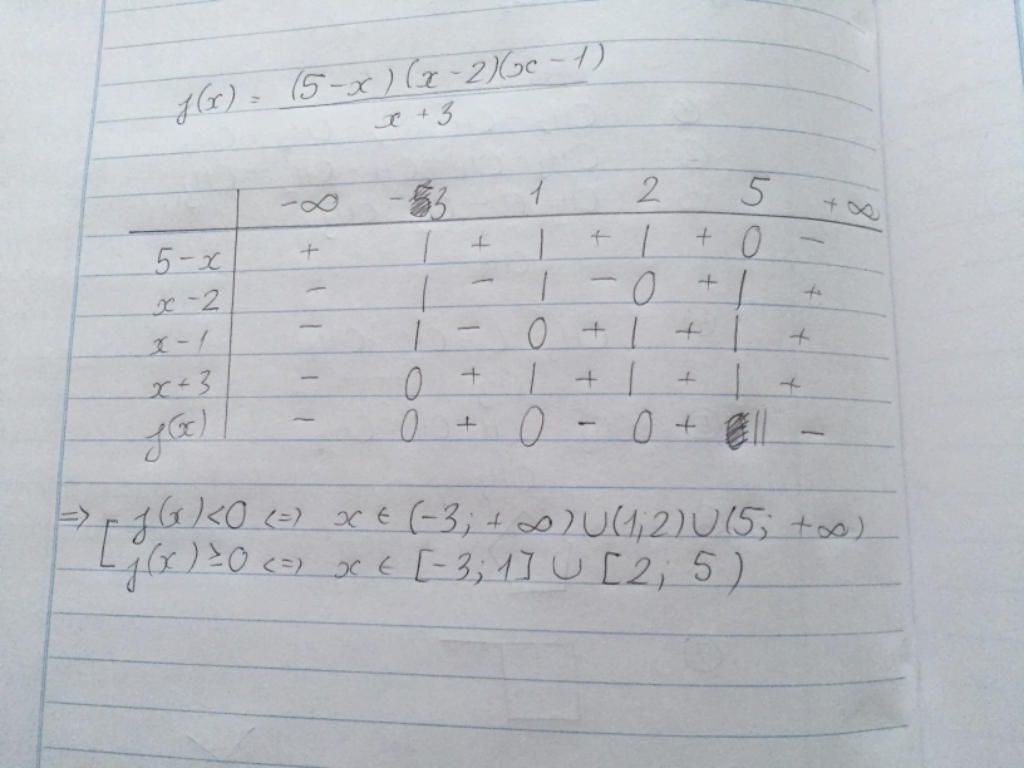 f(x) = (5-x)(x-2)(x-1) / x+3
-∞ -3 1 2 5 +∞
5-x + | + | + | + 0 -
x-2 - | - | - 0 + | +
x-1 - | - 0 + | + | +
x+3 - 0 + | + | + | +
f(x) - 0 + 0 - 0 + || -
=> [ f(x)<0 <=> x ∈ (-3; +∞)∪(1;2)∪(5; +∞)
f(x)≥0 <=> x ∈ [-3; 1] ∪ [2; 5)